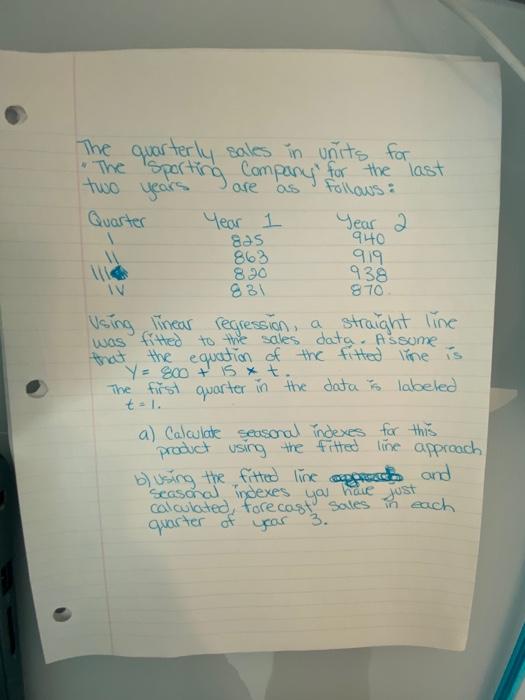 The quarterly sales in units for
"The Sporting Company" for the last
two years are as follows:
Quarter Year 1 Year 2
I 825 940
II 863 919
III 820 938
IV 831 870
Using linear regression, a straight line
was fitted to the sales data. Assume
that the equation of the fitted line is
Y = 800 + 15 * t.
The first quarter in the data is labeled
t = 1.
a) Calculate seasonal indexes for this
product using the fitted line approach
b) Using the fitted line and
seasonal indexes you have just
calculated, forecast sales in each
quarter of year 3.